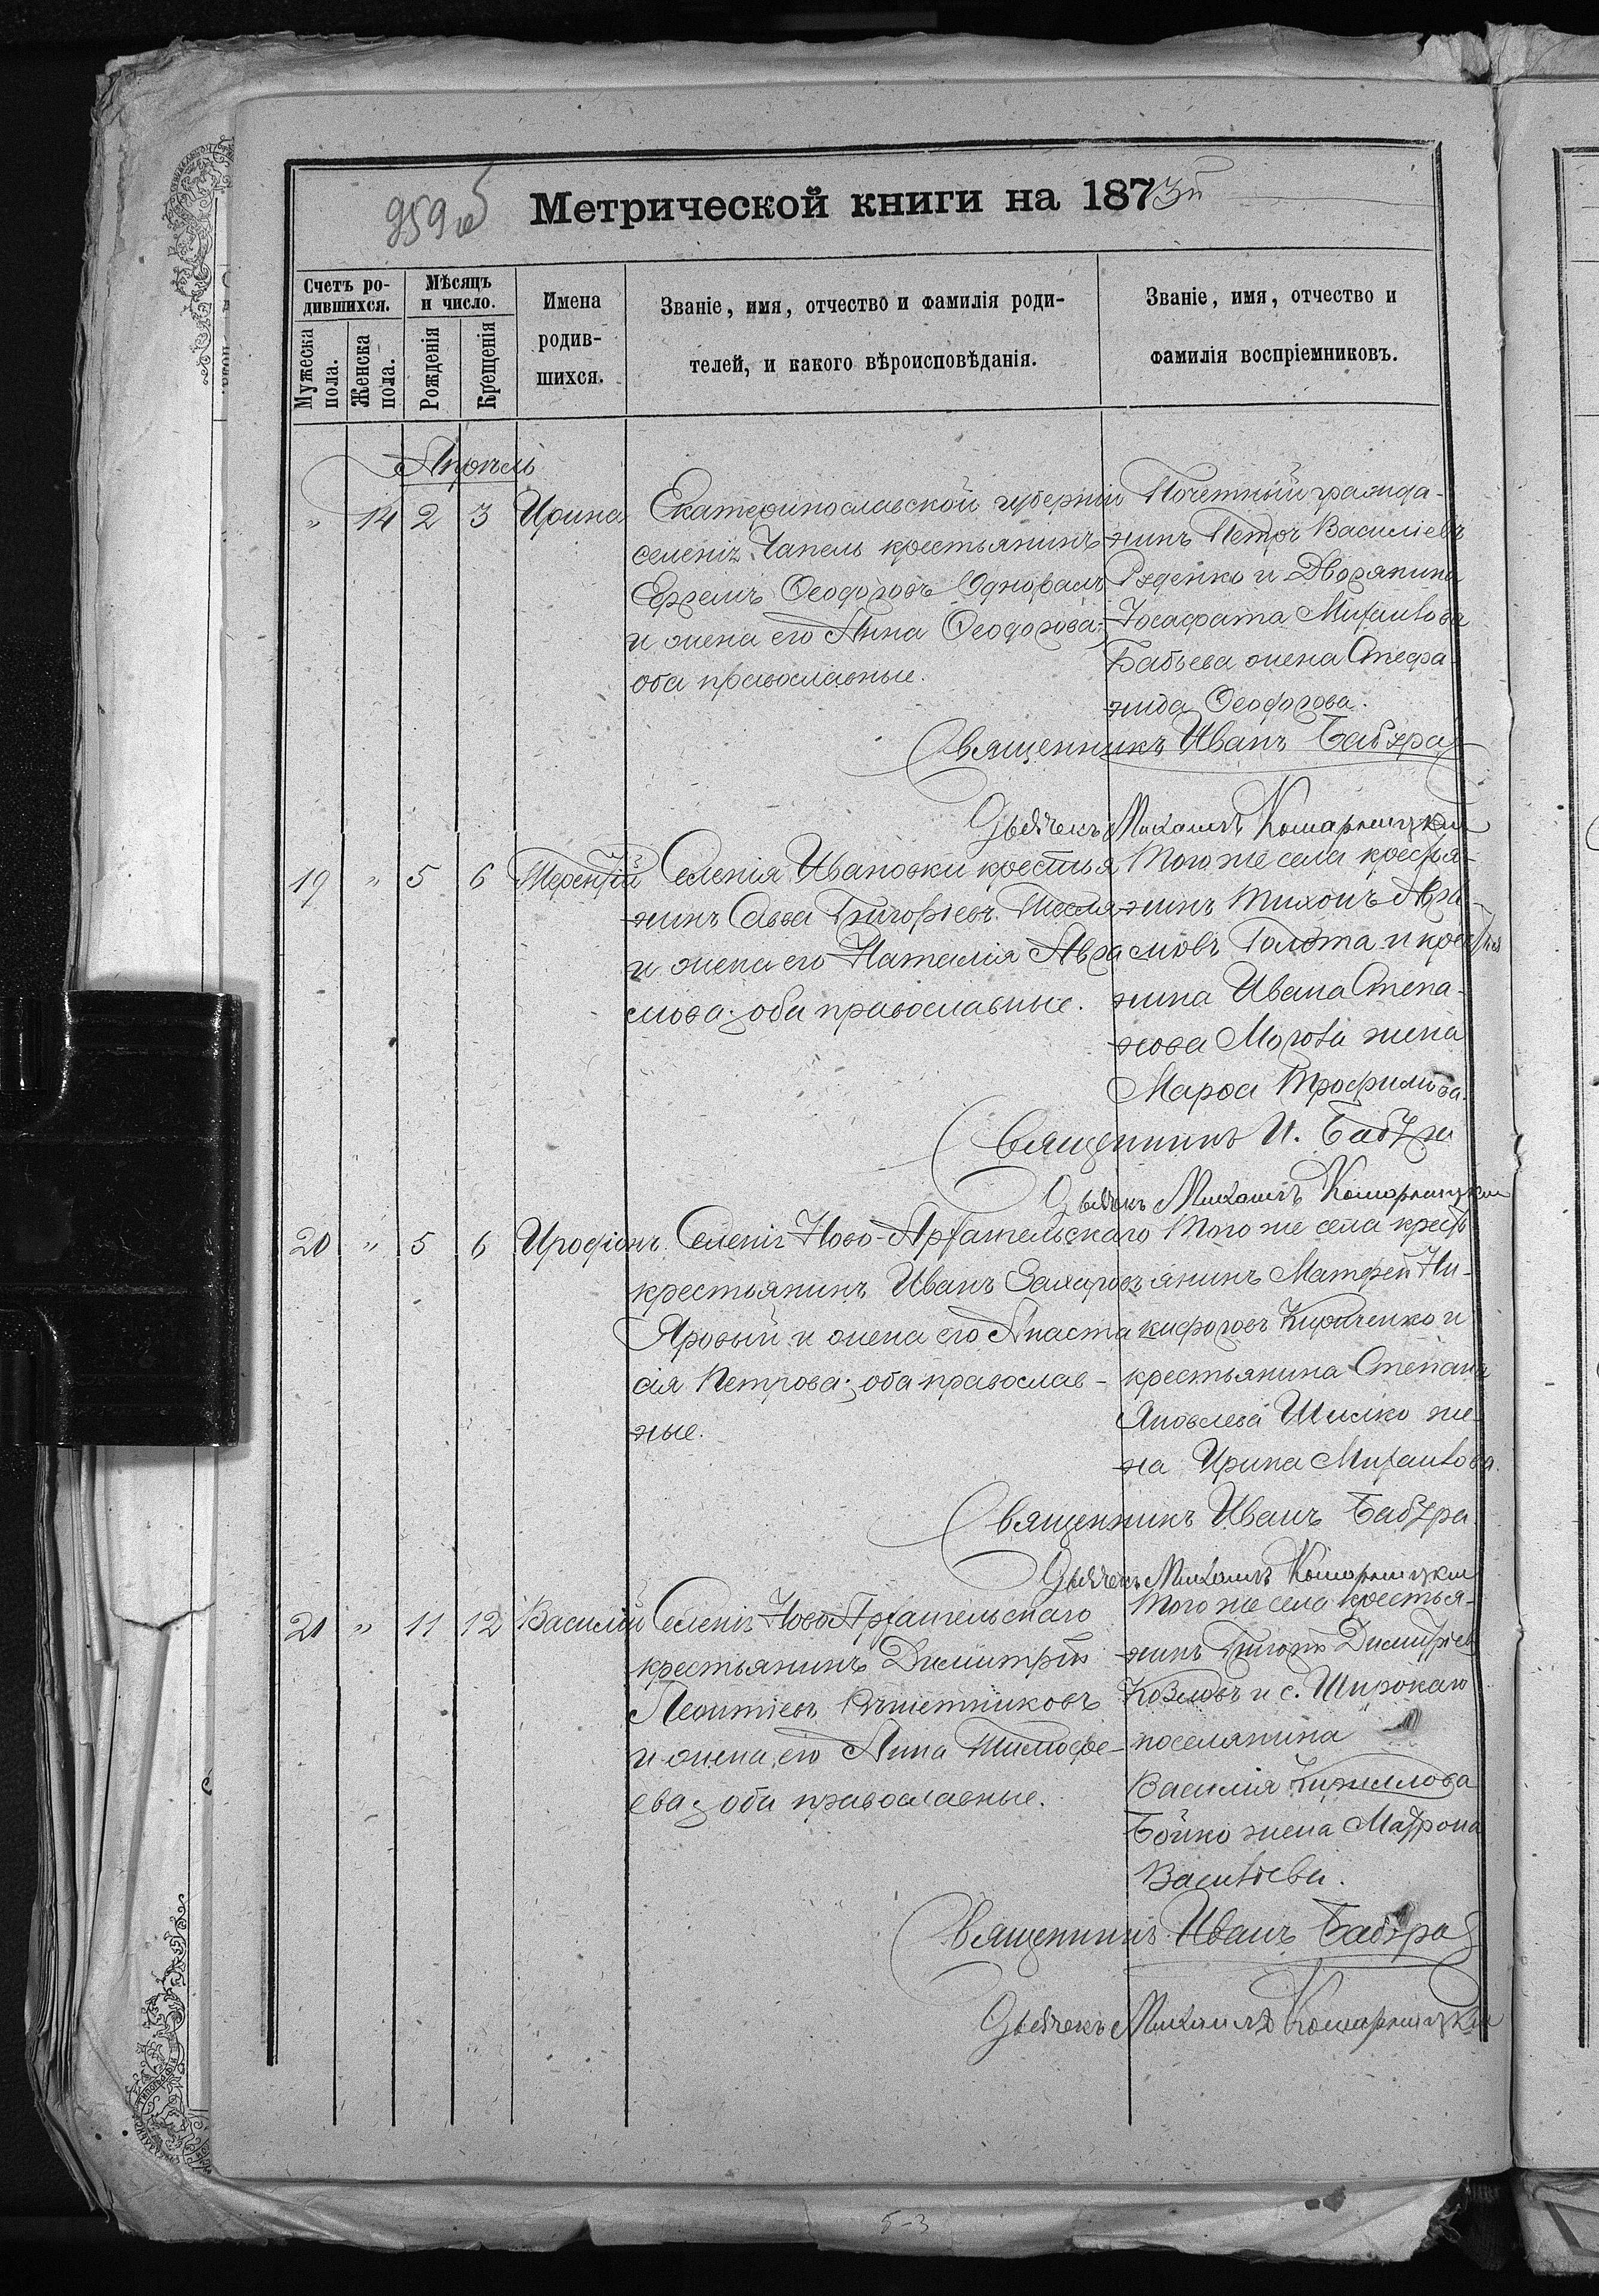 959 об
Метрической книги на 1873й
Счетъ родившихся.
Мѣсяцъ и число.
Имена родившихся.
Званіе, имя, отчество и фамилія родителей, и какого вѣроисповѣданія.
Званіе, имя, отчество и фамилія воспріемниковъ.
Мужеска пола.
Женска пола.
Рожденія
Крещенія
Апрѣль
" 14 2 3 Ирина
Екатеринославской губерніи
селенія Чапель крестьянинъ
Ѳеодоровъ
и жена его Анна Ѳеодорова;
оба православные.
Почетный гражда-
нинъ Петръ Василіевъ
Реденко и Дворянина
Іосафата Михаилова
Бабьева жена Стефа-
нида Ѳеодорова.
Священникъ Иванъ Бабура
Дьячекъ Михаилъ Комарницкій
19 " 5 6 Терентій
Селенія Ивановки крестья
нинъ Савва Григоріевъ Тесля
и жена его Наталія Авра
мова; оба православные.
Того же села крестья-
нинъ Тихонъ Авра-
мовъ Голота и крестья
нина Ивана Степа-
нова жена
Марѳа Трофимова.
Священникъ И. Бабура
Дьячекъ Михаилъ Комарницкій
20 " 5 6 Иродіонъ
Селенія Ново-Архангельскаго
крестьянинъ Иванъ Захаровъ
Яровый и жена его Анаста
сія Петрова; оба православ-
ные.
Того же села крест
янинъ Матфей Ни-
кифоровъ Кириченко и
крестьянина Степана
Яковлева Шилко же-
на Ирина Михаилова.
Священникъ Иванъ Бабура
Дьячекъ Михаилъ Комарницкій
21 " 11 12 Василій
Селенія Ново Архангельскаго
крестьянинъ Димитрій
Леонтіевъ Рѣшетниковъ
и жена его Анна Тимофе-
ева; оба православные.
Того же села крестья-
нинъ Григорій Димитріевъ
Козловъ и с. Широкаго
поселянина
Василія Кириллова
Бойко жена Матрона
Василіева.
Священникъ Иванъ Бабура
Дьячекъ Михаилъ Комарницкій
5-3